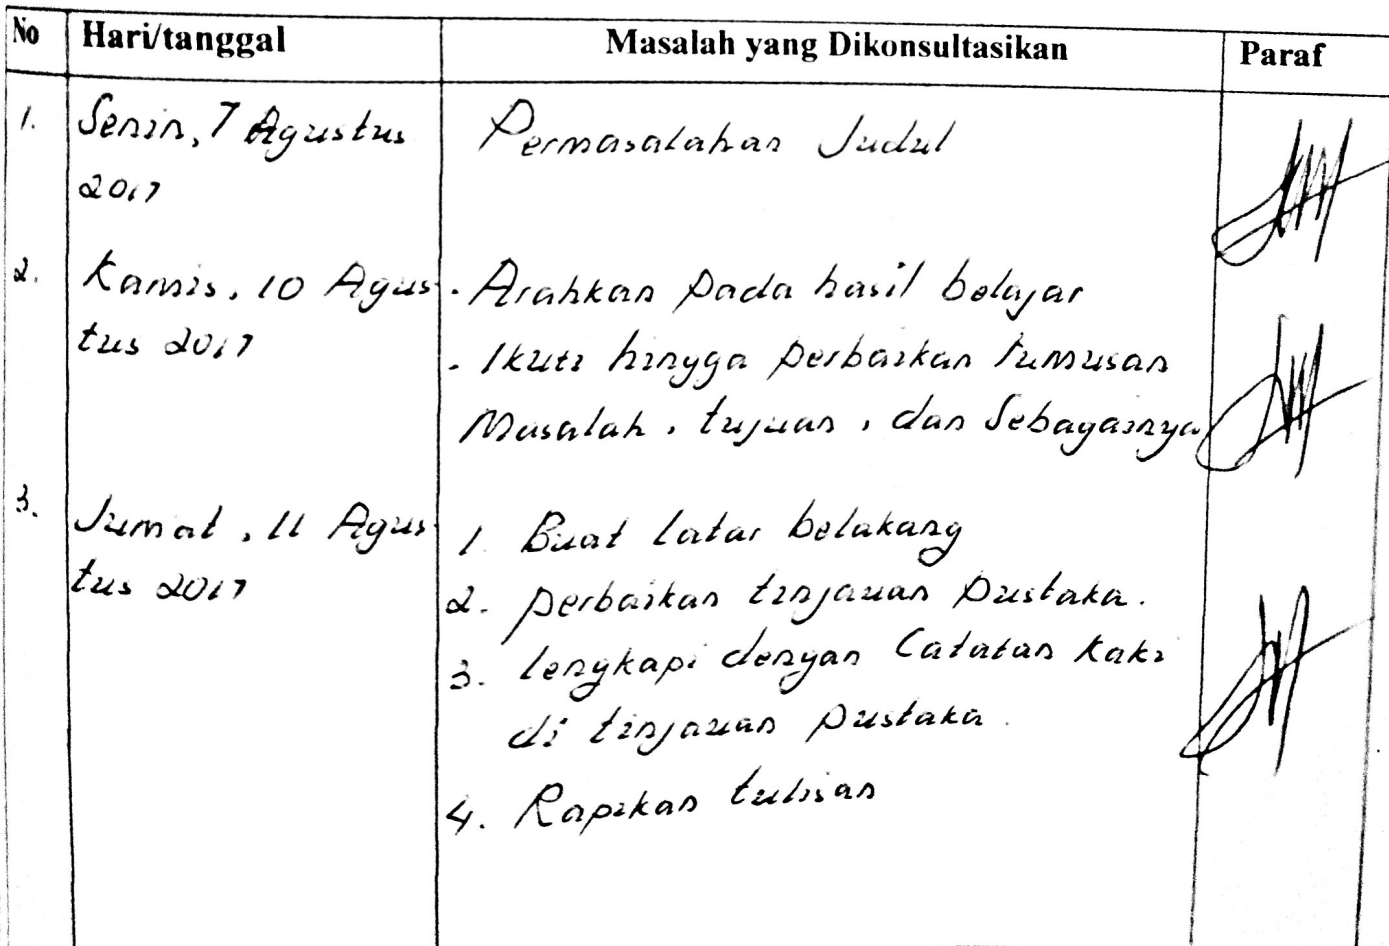 No Hari/tanggal Masalah yang Dikonsultasikan Paraf
1. Senin, 7 Agustus Permasalahan Judul
2017
2. Kamis, 10 Agus - Arahkan pada hasil belajar
tus 2017 - Ikuti hingga perbaikan rumusan
Masalah, tujuan, dan Sebagainya
3. Jumat, 11 Agus 1. Buat latar belakang
tus 2017 2. perbaikan tinjauan pustaka.
3. lengkapi dengan Catatan kaki
di tinjauan pustaka.
4. Rapikan tulisan